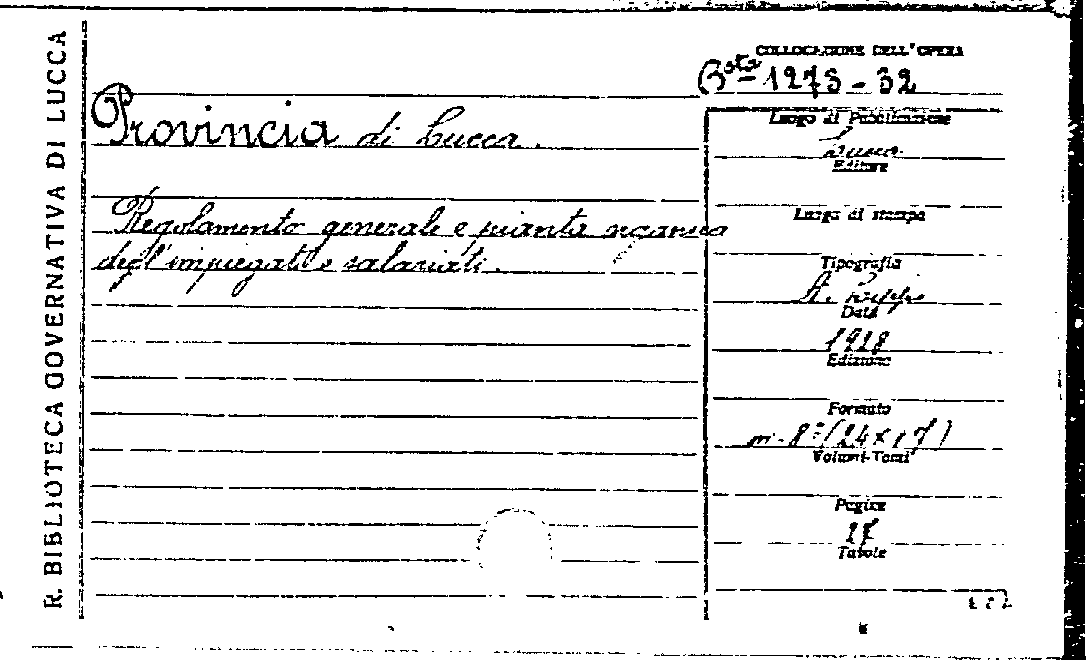 R. BIBLIOTECA GOVERNATIVA DI LUCCA
COLLOCAZIONE DELL'OPERA
Bsta 1273-32
Provincia di Lucca.
Regolamento generale e pianta organica
degl'impiegati e salariati.
Luogo di Pubblicazione
Lucca
Editore
Luogo di stampa
Tipografia
A.
Data
1928
Edizione
Formato
in-8° (24x17)
Volumi-Tomi
Pagine
Tavole